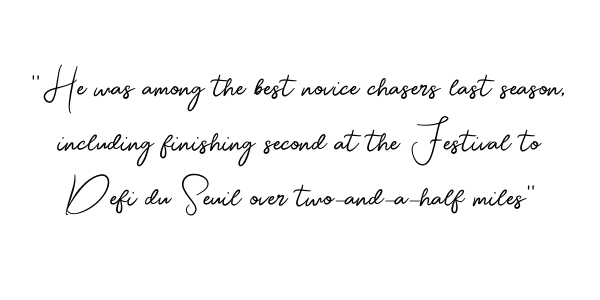 "He was among the best novice chasers last season,
including finishing second at the Festival to
Defi du Seuil over two-and-a-half miles"